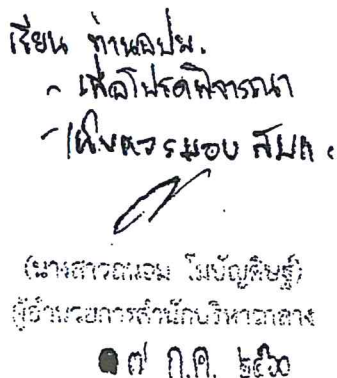 เรียน ท่านอปม.
- เพื่อโปรดพิจารณา
- เห็นควรมอบ สบก.
(นางสาวถนอม โมบัญดิษฐ์)
ผู้อำนวยการสำนักบริหารกลาง
๗ ก.ค. ๒๕๖๐